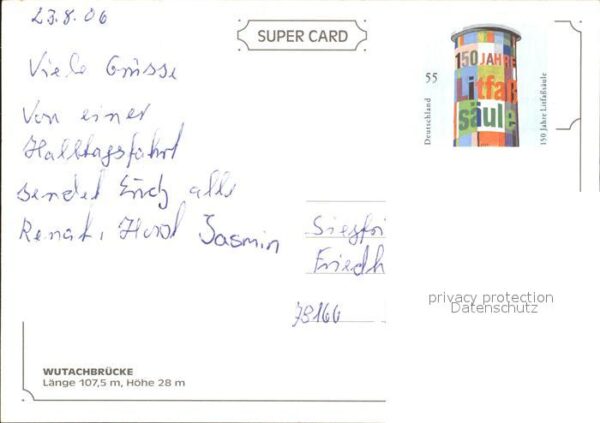 23.8.06
SUPER CARD
Viele Grüsse
Von einer
Halbtagsfahrt
sendet Euch alle
Renate, Horst Jasmin
150 JAHRE
Litfaß
säule
55
Deutschland
150 Jahre Litfaßsäule
Siegfri
Friedh
78166
privacy protection
Datenschutz
WUTACHBRÜCKE
Länge 107,5 m, Höhe 28 m